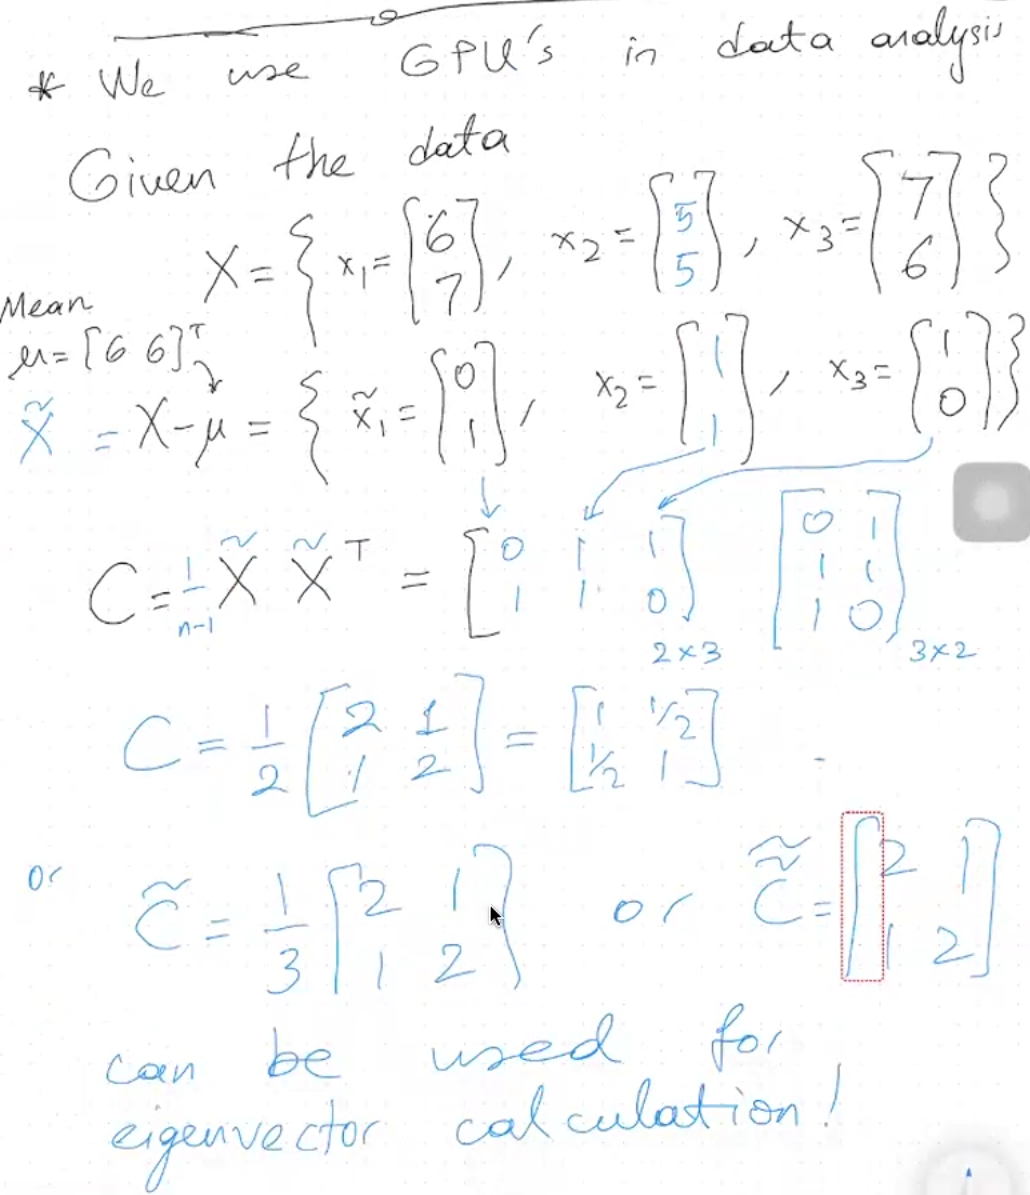 * We use GPU's in data analysis
Given the data
X = { x₁ = [6 7], x₂ = [5 5], x₃ = [7 6] }
Mean
μ = [6 6]ᵀ
X̃ = X - μ = { x̃₁ = [0 1], x₂ = [1 1], x₃ = [1 0] }
C = 1/(n-1) X̃ X̃ᵀ = [0 1 1; 1 1 0] 2×3 [0 1; 1 1; 1 0] 3×2
C = 1/2 [2 1; 1 2] = [1 1/2; 1/2 1]
or C̃ = 1/3 [2 1; 1 2] or C̃̃ = [2 1; 1 2]
can be used for
eigenvector calculation!